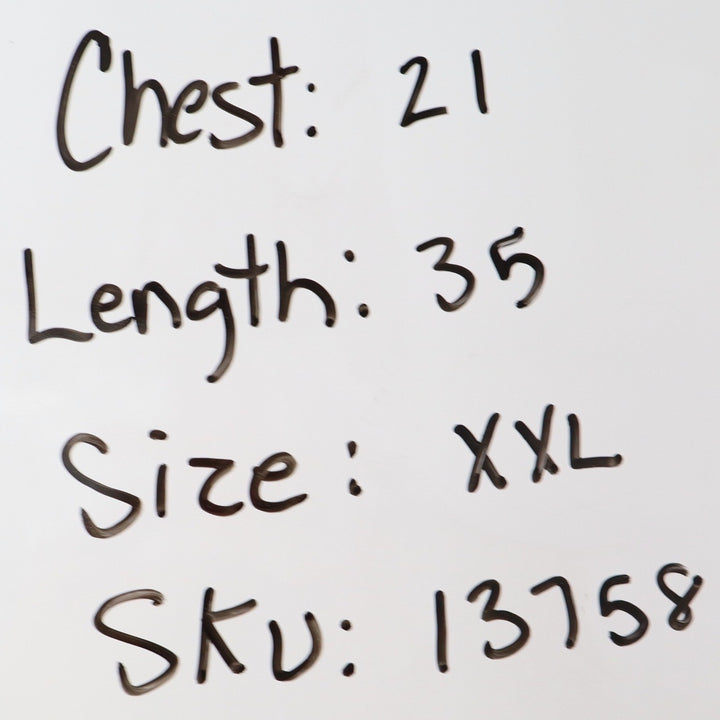 Chest: 21
Length: 35
Size: XXL
SKU: 13758